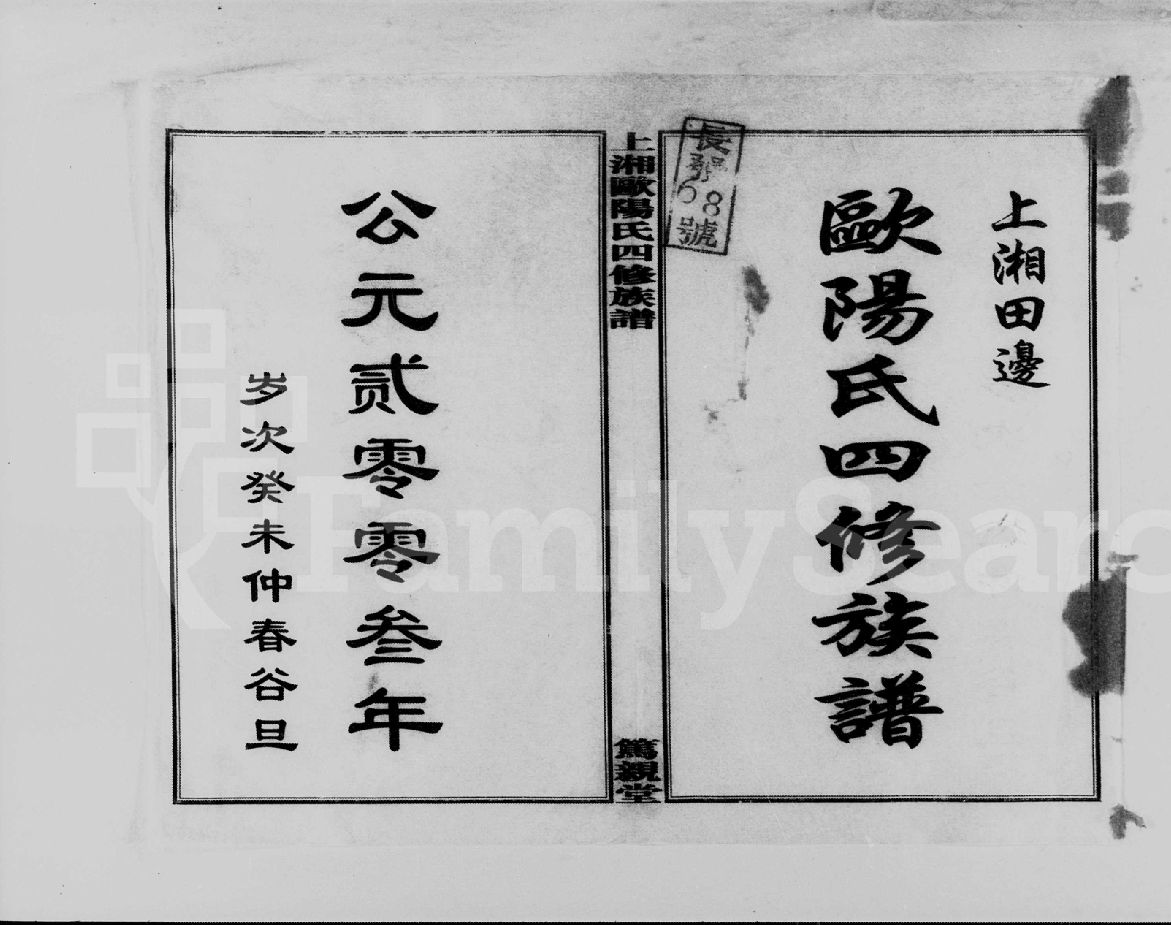 上湘田邊
歐陽氏四修族譜
長
68
號
上湘歐陽氏四修族譜
篤親堂
公元贰零零叁年
岁次癸未仲春谷旦
FamilySearc